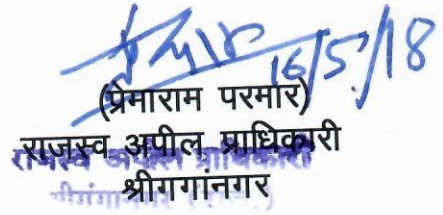 16/5/18
(प्रेमाराम परमार)
राजस्व अपील प्राधिकारी
राजस्व अपील प्राधिकारी
श्रीगगांनगर